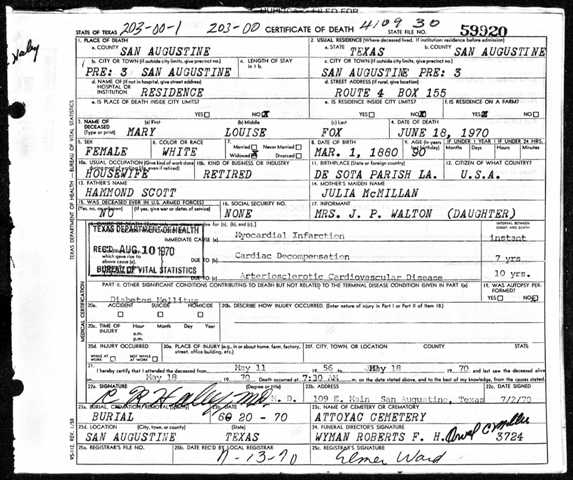 Haley
STATE OF TEXAS 203-00-1 203-00 CERTIFICATE OF DEATH 4109 30 STATE FILE NO. 59920
1. PLACE OF DEATH 2. USUAL RESIDENCE (Where deceased lived. If institution: residence before admission)
a. COUNTY SAN AUGUSTINE a. STATE TEXAS b. COUNTY SAN AUGUSTINE
b. CITY OR TOWN (If outside city limits, give precinct no.) c. LENGTH OF STAY in 1 b. c. CITY OR TOWN (If outside city limits, give precinct no.)
PRE: 3 SAN AUGUSTINE SAN AUGUSTINE PRE: 3
d. NAME OF (If not in hospital, give street address) HOSPITAL OR INSTITUTION RESIDENCE d. STREET ADDRESS (If rural, give location) ROUTE 4 BOX 155
e. IS PLACE OF DEATH INSIDE CITY LIMITS? YES NO X e. IS RESIDENCE INSIDE CITY LIMITS? YES NO X f. IS RESIDENCE ON A FARM? YES X NO
3. NAME OF DECEASED (Type or print) (a) First (b) Middle (c) Last 4. DATE OF DEATH
MARY LOUISE FOX JUNE 18, 1970
5. SEX 6. COLOR OR RACE 7. Married Never Married Widowed X Divorced 8. DATE OF BIRTH 9. AGE IF UNDER 1 YEAR IF UNDER 24 HRS.
FEMALE WHITE MAR. 1, 1880 90 Months Days Hours Minutes
10a. USUAL OCCUPATION (Give kind of work done during most of working life, even if retired) 10b. KIND OF BUSINESS OR INDUSTRY 11. BIRTHPLACE (State or foreign country) 12. CITIZEN OF WHAT COUNTRY?
HOUSEWIFE RETIRED DE SOTA PARISH LA. U.S.A.
13. FATHER'S NAME 14. MOTHER'S MAIDEN NAME
HAMMOND SCOTT JULIA McMILLAN
15. WAS DECEASED EVER IN U.S. ARMED FORCES? 16. SOCIAL SECURITY NO. 17. INFORMANT
(Yes, no, or unknown) (If yes, give war or dates of service)
NO NONE MRS. J. P. WALTON (DAUGHTER)
TEXAS DEPARTMENT OF HEALTH
REC'D AUG 10 1970
BUREAU OF VITAL STATISTICS
INTERVAL BETWEEN ONSET AND DEATH
IMMEDIATE CAUSE (a) Myocardial Infarction instant
which gave rise to above cause (a), DUE TO (b) Cardiac Decompensation 7 yrs
DUE TO (c) Arteriosclerotic Cardiovascular Disease 10 yrs.
PART II. OTHER SIGNIFICANT CONDITIONS CONTRIBUTING TO DEATH BUT NOT RELATED TO THE TERMINAL DISEASE CONDITION GIVEN IN PART I(a) 19. WAS AUTOPSY PERFORMED?
Diabetes Mellitus YES NO X
20a. ACCIDENT SUICIDE HOMICIDE 20b. DESCRIBE HOW INJURY OCCURRED. (Enter nature of injury in Part I or Part II of item 18.)
20c. TIME OF INJURY Hour Month Day Year a.m. p.m.
20d. INJURY OCCURRED WHILE AT WORK NOT WHILE AT WORK 20e. PLACE OF INJURY (e.g., in or about home, farm, factory, street, office building, etc.) 20f. CITY, TOWN, OR LOCATION COUNTY STATE
21. I hereby certify that I attended the deceased from May 11 56 May 18 70 and last saw the deceased alive
May 18 70 Death occurred at 7:30 AM on the date stated above, and to the best of my knowledge, from the causes stated.
22a. SIGNATURE (Degree or title) 22b. ADDRESS 22c. DATE SIGNED
C R Haley, MD M. D. 109 E. Main San Augustine, Texas 7/2/70
23a. BURIAL, CREMATION, REMOVAL (Specify) 23b. DATE 23c. NAME OF CEMETERY OR CREMATORY
BURIAL 6 20 - 70 ATTOYAC CEMETERY
23d. LOCATION (City, town, or county) (State) 24. FUNERAL DIRECTOR'S SIGNATURE
SAN AUGUSTINE TEXAS WYMAN ROBERTS F. H. 3724
25a. REGISTRAR'S FILE NO. 25b. DATE REC'D BY LOCAL REGISTRAR 25c. REGISTRAR'S SIGNATURE
7-13-70 Elmer Ward
TEXAS DEPARTMENT OF HEALTH - BUREAU OF VITAL STATISTICS
MEDICAL CERTIFICATION